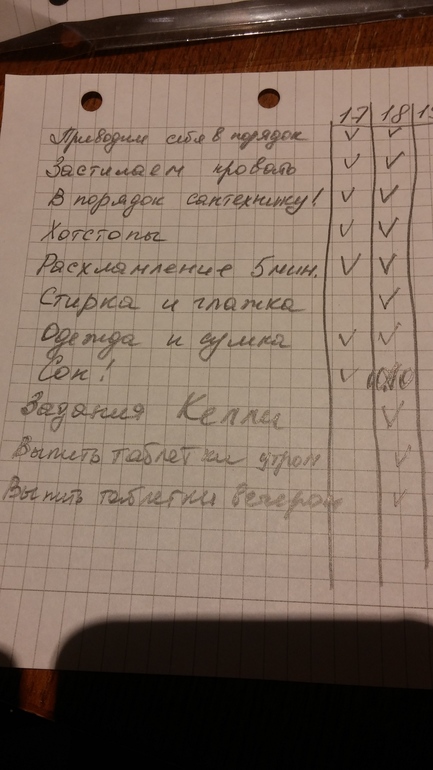 17 18 1
Приводим себя в порядок
Застилаем кровать
В порядок сантехнику!
Хотстопы
Расхламление 5 мин.
Стирка и глажка
Одежда и сумка
Сон!
Задания Келли
Выпить таблетки утром
Выпить таблетки вечером